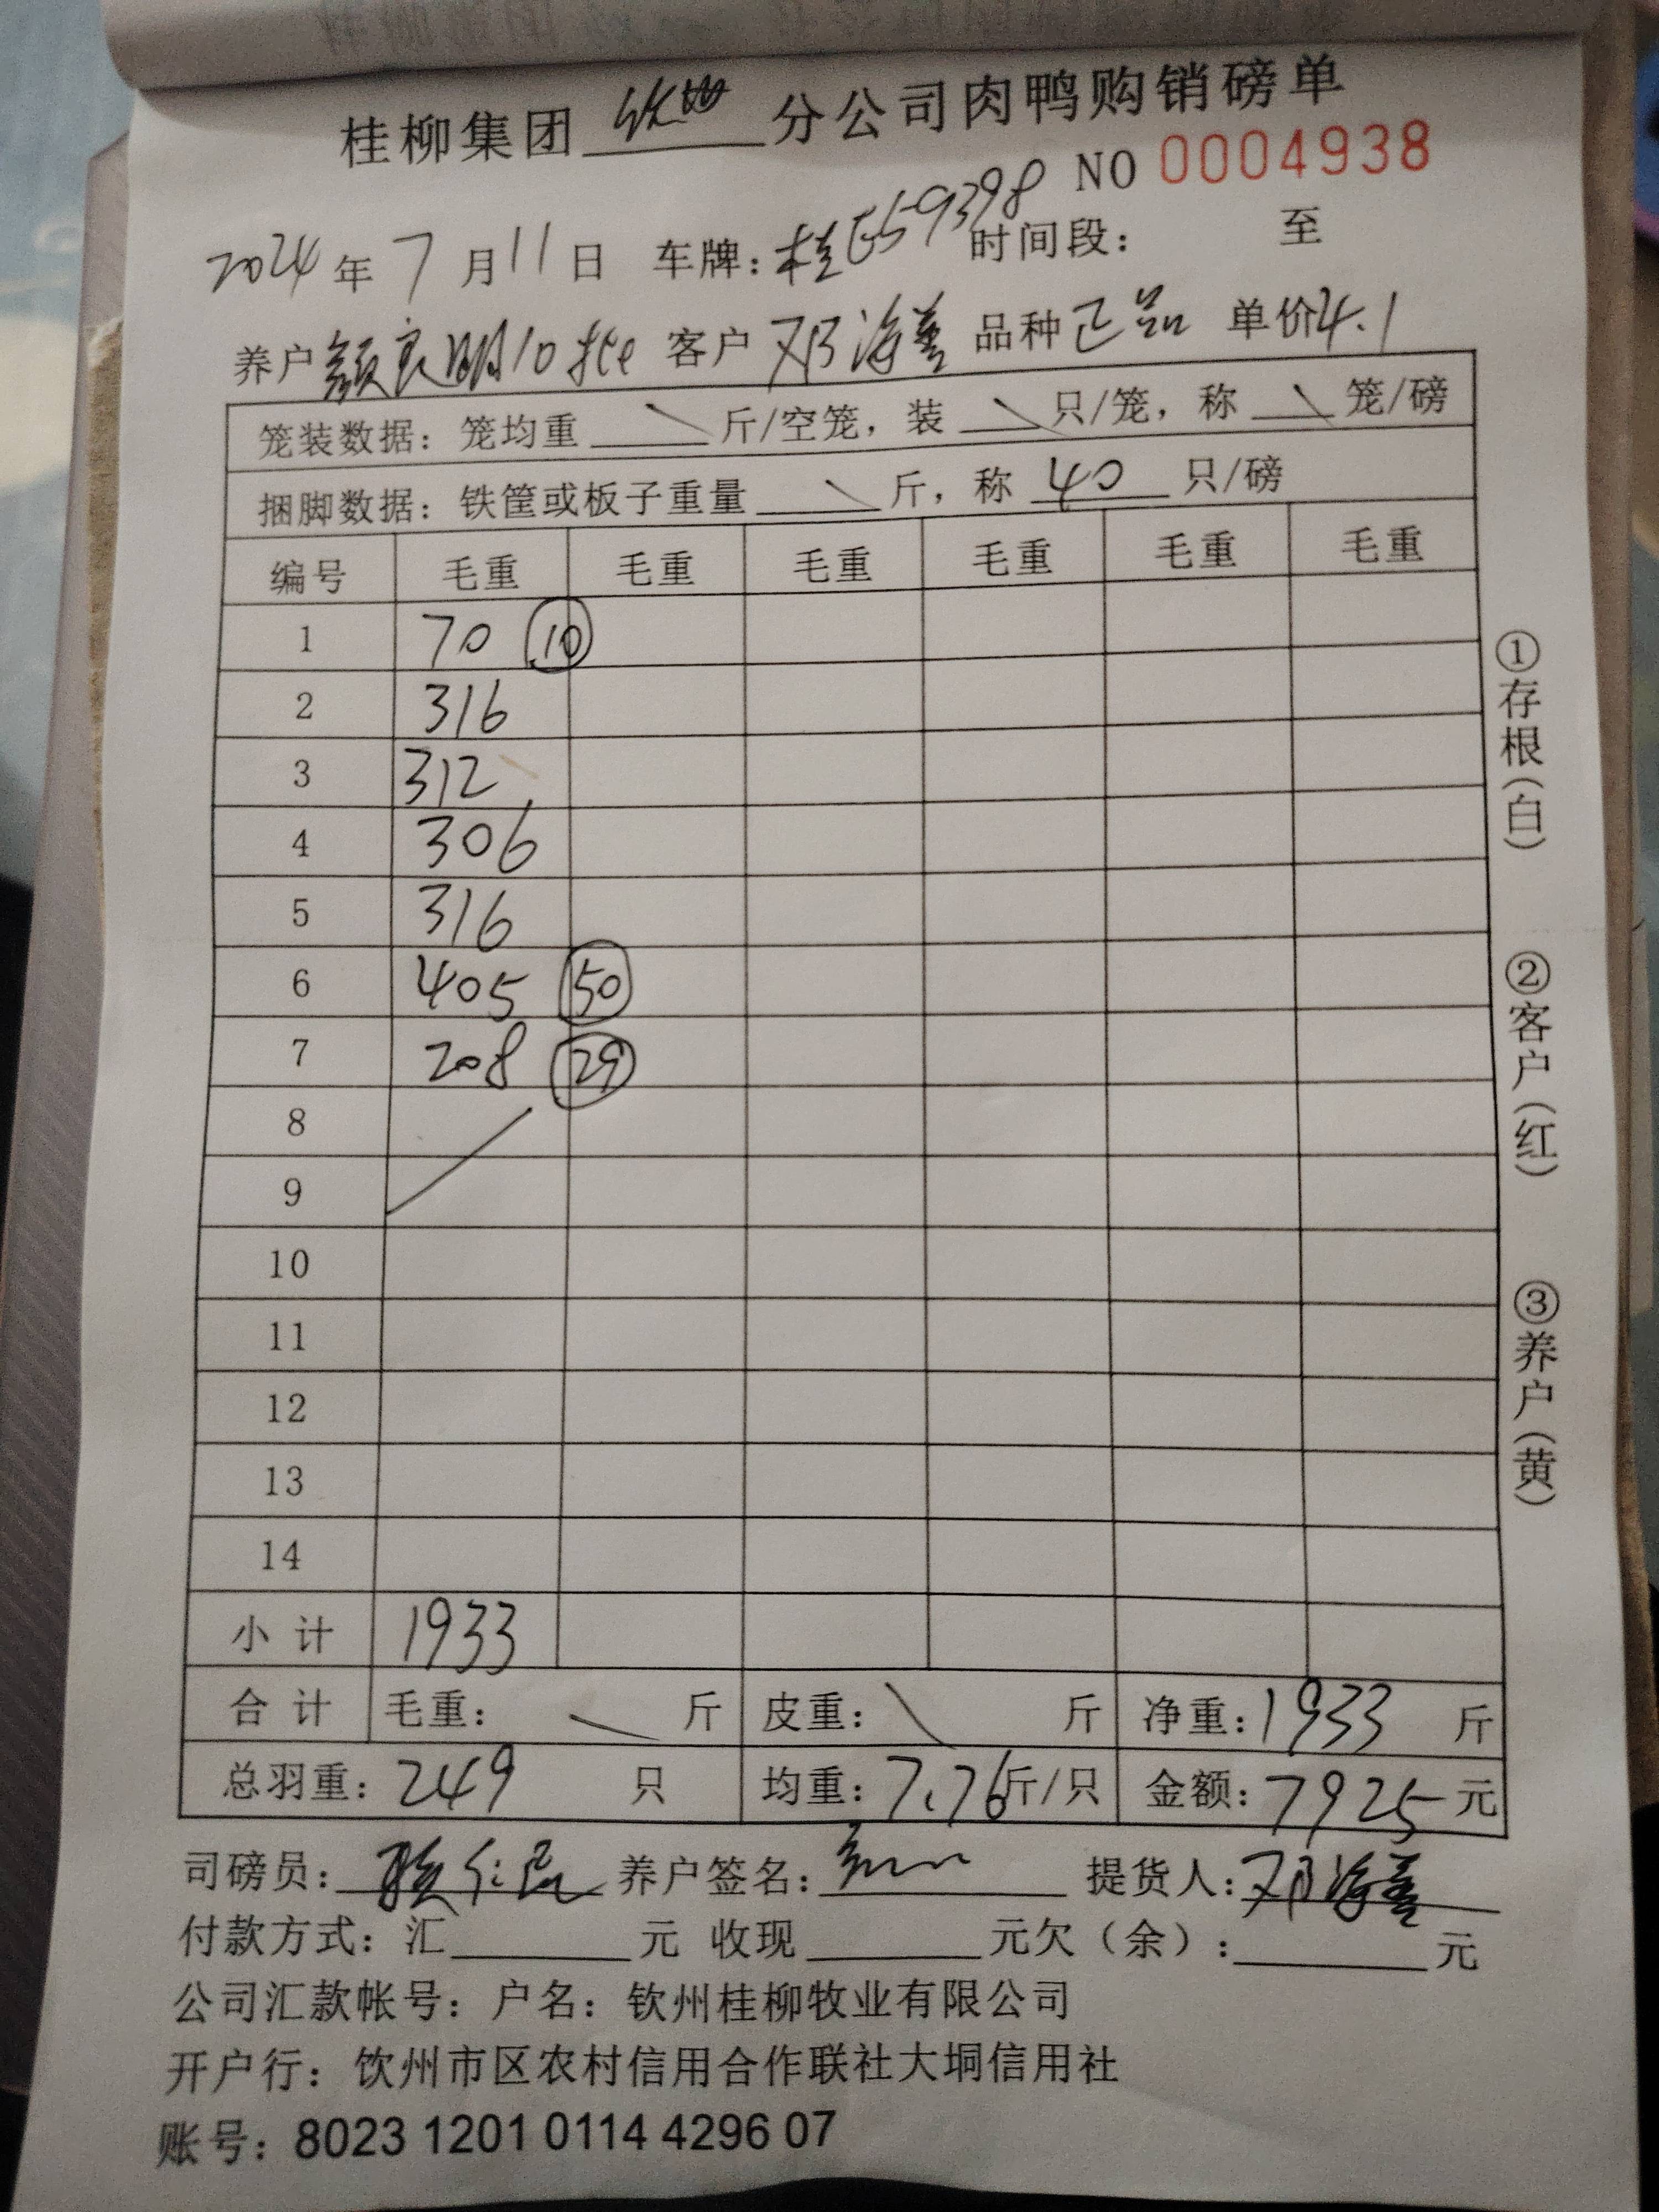 桂柳集团 钦州 分公司肉鸭购销磅单
NO 0004938
2024 年 7 月 11 日 车牌：桂E59398 时间段： 至
养户 颜良明10批 客户 邓海善 品种 正品 单价 4.1
笼装数据：笼均重 \ 斤/空笼，装 \ 只/笼，称 \ 笼/磅
捆脚数据：铁筐或板子重量 \ 斤，称 40 只/磅
编号 毛重 毛重 毛重 毛重 毛重 毛重
1 70 ⑩
2 316
3 312
4 306
5 316
6 405 ㊿
7 208 ㉙
8
9
10
11
12
13
14
小 计 1933
合 计 毛重： \ 斤 皮重： \ 斤 净重：1933 斤
总羽重：249 只 均重：7.76斤/只 金额：7925 元
司磅员： 养户签名： 提货人：邓海善
付款方式：汇 元 收现 元欠（余）： 元
公司汇款帐号：户名：钦州桂柳牧业有限公司
开户行：饮州市区农村信用合作联社大垌信用社
账号：8023 1201 0114 4296 07
①存根（白）
②客户（红）
③养户（黄）